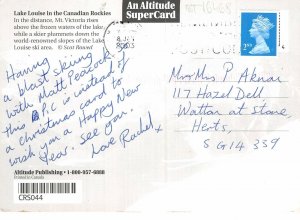 Lake Louise in the Canadian Rockies
In the distance, Mt. Victoria rises
above the frozen waters of the lake
while a skier plummets down the
world-renowned slopes of the
Lake Louise ski area. © Scott Rowed
An Altitude
SuperCard
2ND
Having
a blast skiing
with Matt Peacock.
this B.P.C is instead of
a christmas card to
wish you a Happy New
Year. See you.
Love Rachel x
Mr Mrs P Aknai
117 Hazel Dell
Watton at Stone,
Herts,
SG14 3
Altitude Publishing • 1-800-957-6888
Printed in Canada
CRS044